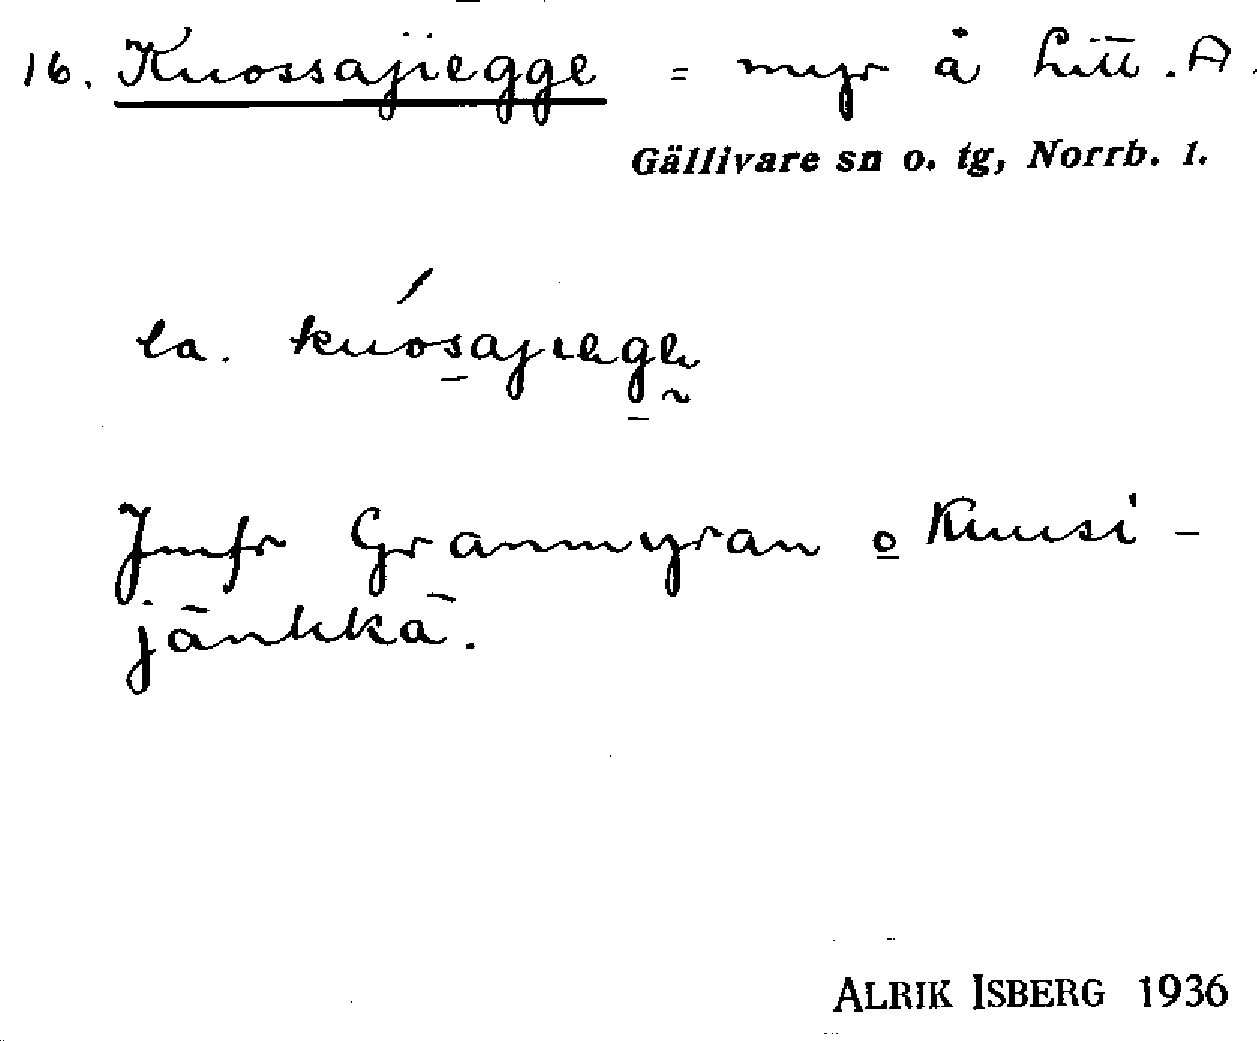 16. Kuossajiegge = myr å Litt. A.
Gällivare sn o. tg, Norrb. l.
la. kuósajiegge
Jmfr Granmyran o Kuusi-
jänkkä.
ALRIK ISBERG 1936